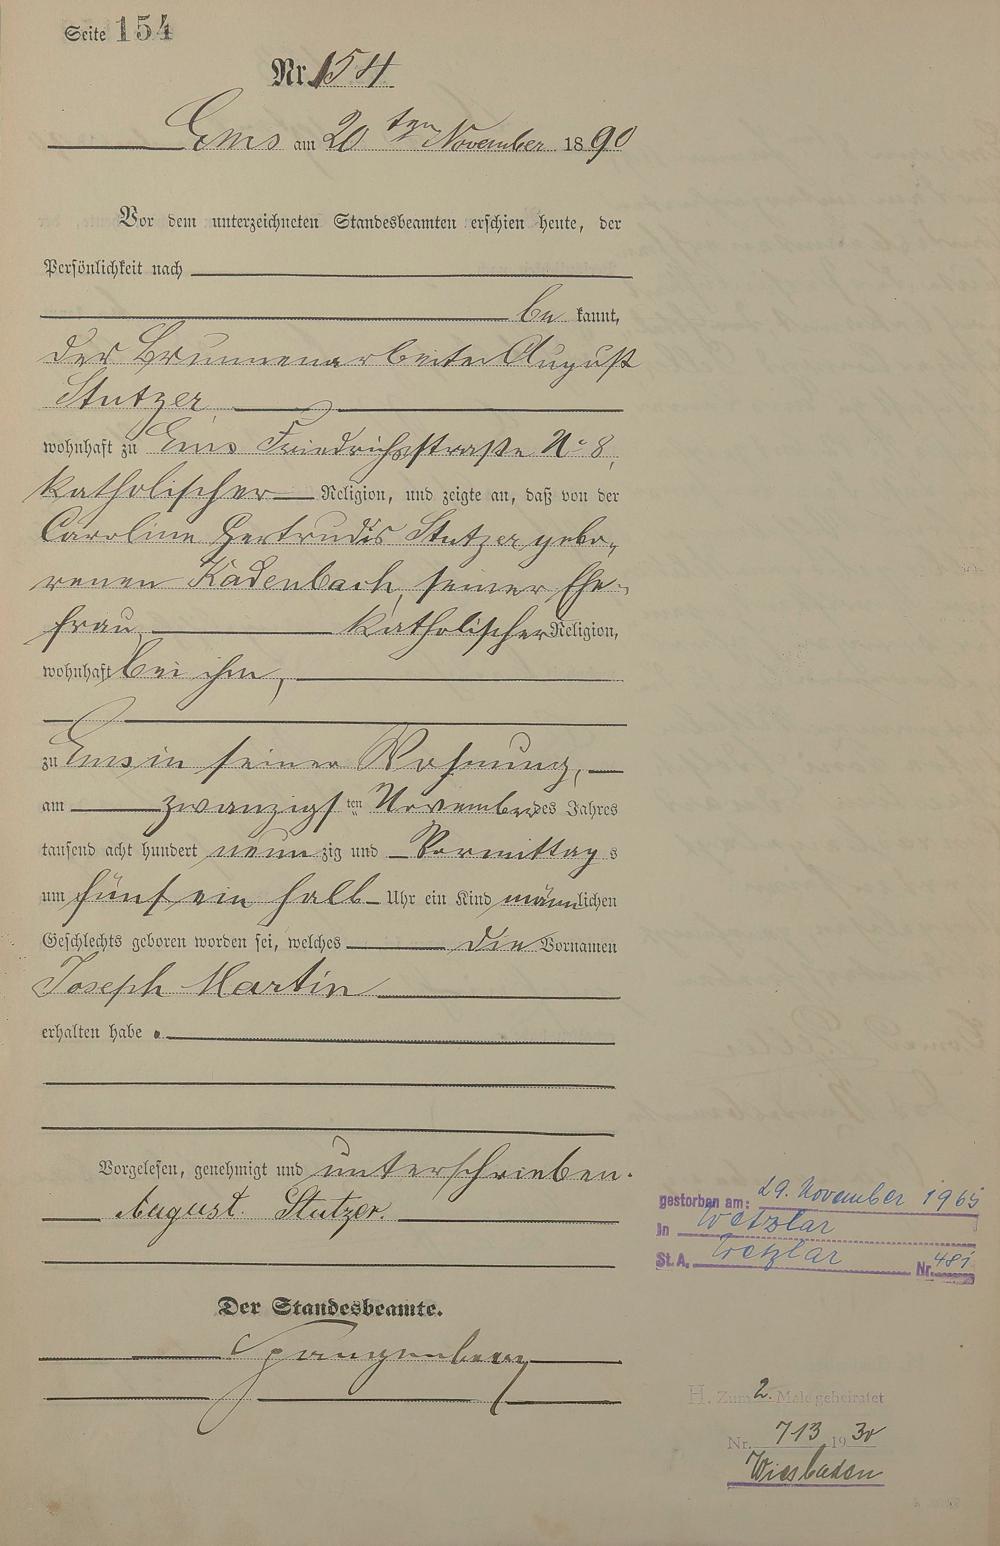 Seite 154
Nr. 154
Ems am 20ten November 1890
Vor dem unterzeichneten Standesbeamten erschien heute, der
Persönlichkeit nach
be kannt,
der Brunnenarbeiter August
Stutzer
wohnhaft zu Ems Friedrichsstraße No 8,
katholischer Religion, und zeigte an, daß von der
Caroline Gertrudis Stutzer gebo-
renen Kadenbach, seiner Ehe-
frau, katholischer Religion,
wohnhaft bei ihm,
zu Ems in seiner Wohnung,
am zwanzigsten November des Jahres
tausend acht hundert neunzig und Vormittags
um fünf ein halb Uhr ein Kind männlichen
Geschlechts geboren worden sei, welches die Vornamen
Joseph Martin
erhalten habe.
Vorgelesen, genehmigt und unterschrieben.
August Stutzer.
Der Standesbeamte.
Spangenberg
gestorben am: 29. November 1965
in Wetzlar
St.A. Wetzlar Nr. 481
H. Zum 2. Male geheiratet
Nr. 713 1930
Wiesbaden